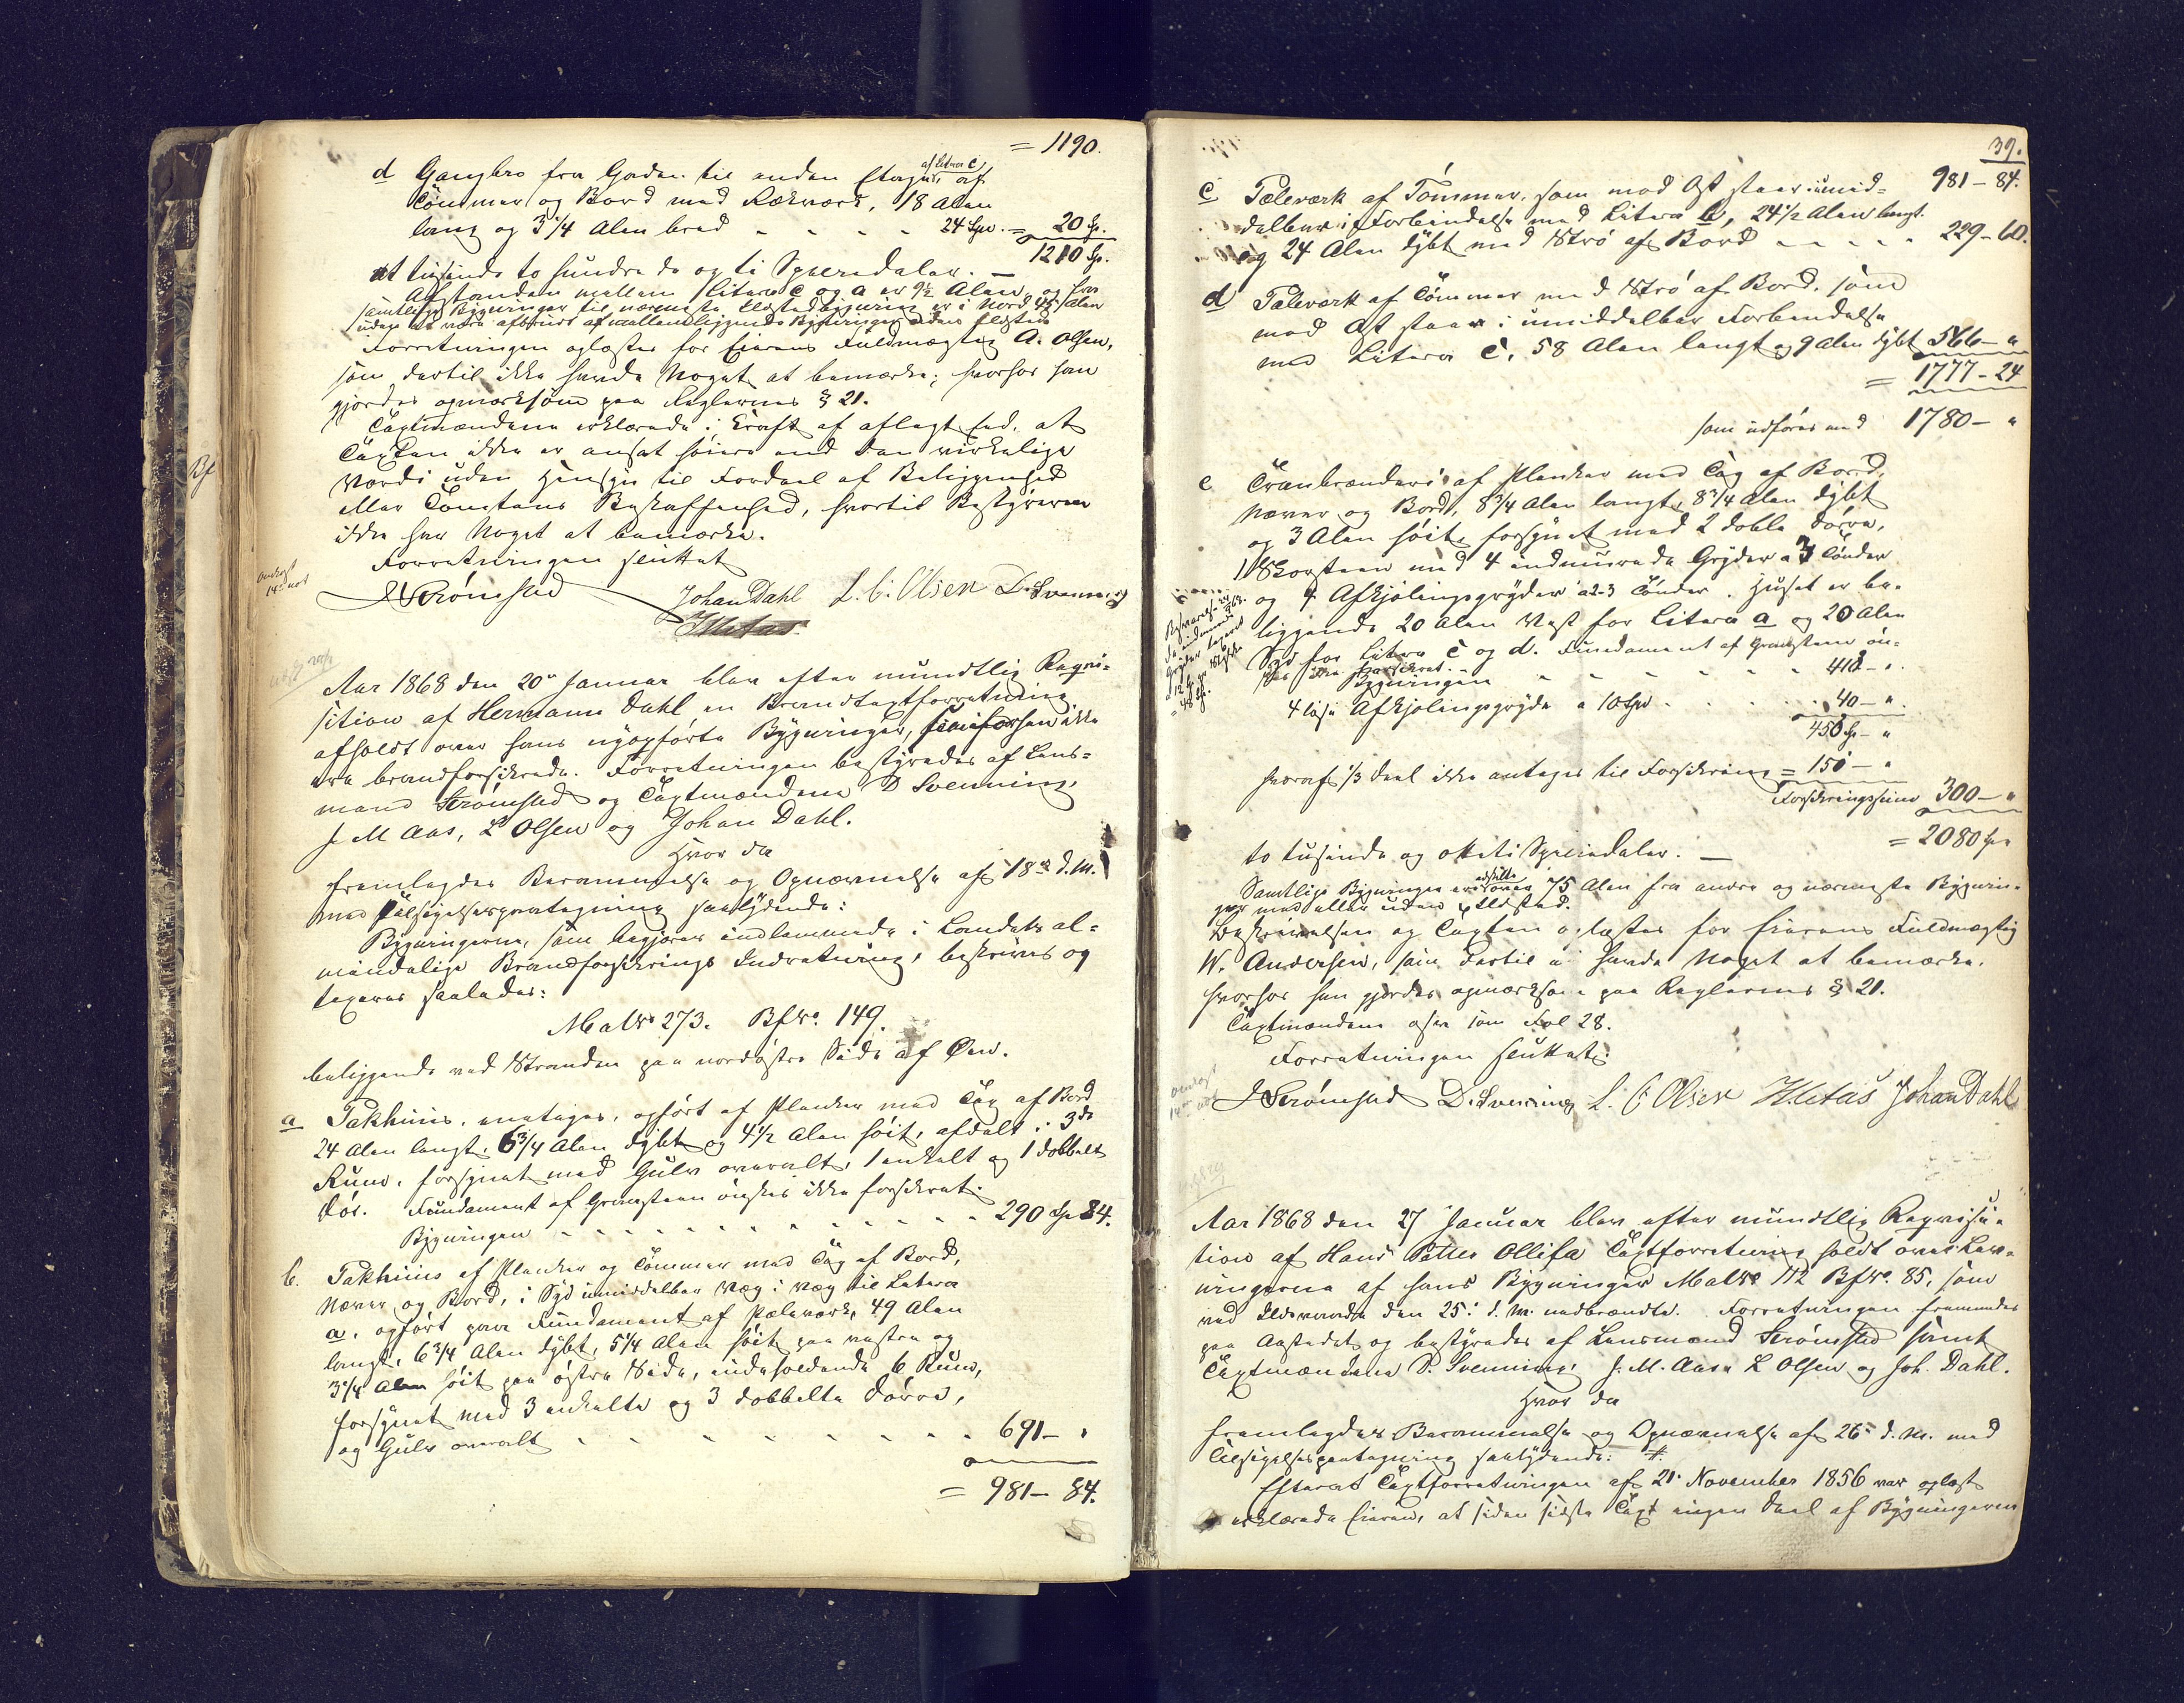 = 1190.
af Litra c,
d Gangbro fra Gaden til anden Etage, af
Tömmer og Bord med Rækværk, 18 Alen
lang og 3 1/4 Alen bred - - - - 24 Spd. = 20 Sp.
1210 Sp.
et tusinde to hundrede og ti Speciedaler. —
Afstanden mellem Litra c og a er 9 1/2 Alen, og fra
samtlige Bygninger til nærmeste Ildstedbygning er i Nord 45 Alen
uden at være afbrudt af mellemliggende Bygninger uden Ildsted
Forretningen oplæstes for Eierens Fuldmægtig A. Olsen,
som dertil ikke havde Noget at bemærke; hvorhos han
gjordes opmærksom paa Reglernes § 21.
Taxtmændene erklærede i Kraft af aflagt Eed, at
Taxten ikke er ansat høiere end den virkelige
Værdi uden Hensyn til Fordeel af Beliggenhed
eller Tomtens Beskaffenhed, hvortil Bestyreren
ikke har Noget at bemærke.
Forretningen sluttet
JStrömsted Johan Dahl L. C. Olsen D. Svenning
Aar 1868 den 20de Januar blev efter mundtlig Reqvi=
sition af Hermann Dahl en Brandtaxtforretning
afholdt over hans nyopførte Bygninger, som forhen ikke
ere brandforsikrede. Forretningen bestyredes af Lens=
mand Strömsted og Taxtmændene D Svenning,
J M Aas, L Olsen og Johan Dahl.
Hvor da
fremlagdes Berammelse og Opnævnelse af 18de d.M.
med Tilsigelsespaategning saalydende:
Bygningerne, som begjæres indlemmede i Landets al=
mindelige Brandforsikrings Indretning, beskrives og
taxeres saaledes:
MatNo 273. BfNo. 149.
beliggende ved Stranden paa nordöstre Side af Öen.
a Pakhuus, enetages, opfört af Planker med Tag af Bord
24 Alen langt, 6 3/4 Alen dybt og 4 1/2 Alen höit, afdelt i 3de
Rum, forsynet med Gulv overalt, 1 enkelt og 1 dobbelt
Dör. Fundament af Graasteen önskes ikke forsikret.
Bygningen - - - - - - - - - - 290 Sp 84.
b. Pakhuus af Planker og Tömmer med Tag af Bord,
Næver og Bord, i Syd umiddelbar Væg i Væg til Litera
a, opfört paa Fundament af Pæleværk, 49 Alen
langt, 6 3/4 Alen dybt, 5 1/4 Alen höit paa vestre og
3 1/4 Alen höit paa östre Side, indeholdende 6 Rum,
forsynet med 3 enkelte og 3 dobbelte Dörre,
og Gulv overalt - - - - - - - - 691 - "
= 981 - 84.
39.
981 - 84.
c Pæleværk af Tömmer, som mod Öst staar i umid=
delbar Forbindelse med Litera b, 24 1/2 Alen langt
og 24 Alen dybt med Strö af Bord - - - - - 229 - 60.
d Pæleværk af Tömmer med Strö af Bord, som
mod Öst staar i umiddelbar Forbindelse
med Litera c, 58 Alen langt og 9 Alen dybt 566 - "
= 1777 - 24
som udföres med 1780 - "
e Tranbrænderi af Planker med Tag af Bord,
Næver og Bord, 8 3/4 Alen langt, 8 3/4 Alen dybt
og 3 Alen höit, forsynet med 2 doble Dörre,
1 Skorsteen med 4 indmurede Gryder a 3 Tönder
og 4 Afkjölingsgryder a 2-3 Tönder. Huset er be=
liggende 20 Alen Vest for Litera a og 20 Alen
Syd for Litra c og d. Fundament af Graasteen ön=
skes ikke forsikret. -
Bygningen - - - - - - 410 - ".
4 löse Afkjölingsgryder a 10 Spd - - - - 40 - ".
450 Sp - "
hvoraf 1/3 Deel ikke antages til Forsikring = 150 - "
Forsikringssum 300 - "
= 2080 Sp
to tusinde og otteti Speciedaler. —
adskilte
Samtlige Bygninger ere over 75 Alen fra andre og nærmeste Bygnin=
ger med eller uden Ildsted.
Beskrivelsen og Taxten oplæstes for Eierens Fuldmægtig
W. Andersen, som dertil ei havde Noget at bemærke.
hvorhos han gjordes opmærksom paa Reglernes § 21.
Taxtmændene afgav som Fol 28.
Forretningen sluttet.
JStrömsted D. Svenning L. C Olsen JMAas Johan Dahl
Aar 1868 den 27 Januar blev efter mundtlig Reqvisi=
tion af Hans Petter Ollifa Taxtforretning holdt over Lev=
ningerne af hans Bygninger MatNo. 112 BfNo. 85, som
ved Ildsvaade den 25. d. M. nedbrændte. Forretningen fremmedes
paa Aastedet og bestyredes af Lensmand Strömsted samt
Taxtmændene D. Svenning, J. M. Aas, L Olsen og Joh. Dahl.
Hvor da
fremlagdes Berammelse og Opnævnelse af 26de d. M. med
Tilsigelsespaategning saalydende: #.
Efterat Taxtforretningen af 21. November 1856 var oplæst
erklærede Eieren, at siden sidste Taxt ingen Deel af Bygningerne